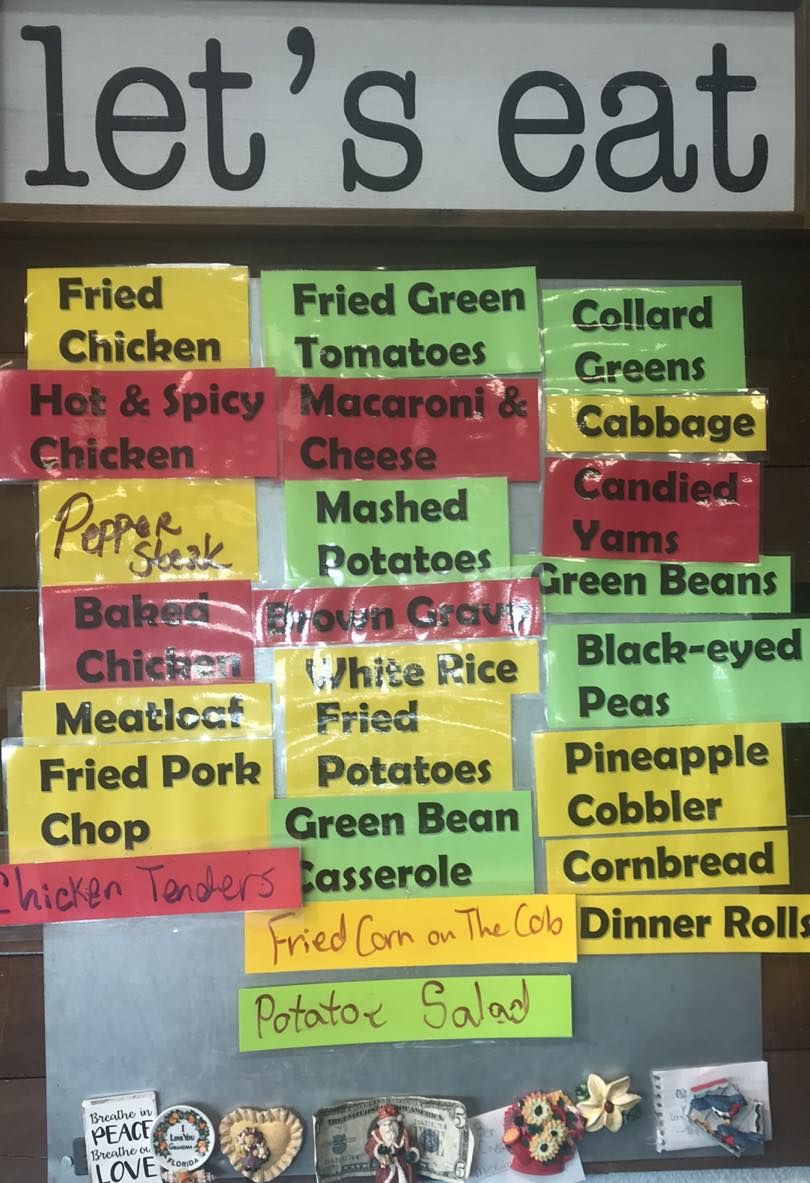 let's eat
Fried
Chicken
Hot & Spicy
Chicken
Pepper
Steak
Baked
Chicken
Meatloaf
Fried Pork
Chop
Chicken Tenders
Fried Green
Tomatoes
Macaroni &
Cheese
Mashed
Potatoes
Brown Gravy
White Rice
Fried
Potatoes
Green Bean
Casserole
Fried Corn on The Cob
Potatoe Salad
Collard
Greens
Cabbage
Candied
Yams
Green Beans
Black-eyed
Peas
Pineapple
Cobbler
Cornbread
Dinner Rolls
Breathe in
PEACE
Breathe ou
LOVE
I
LOVE YOU
GRANDMA
FLORIDA
THE UNITED STATES OF AMERICA
5